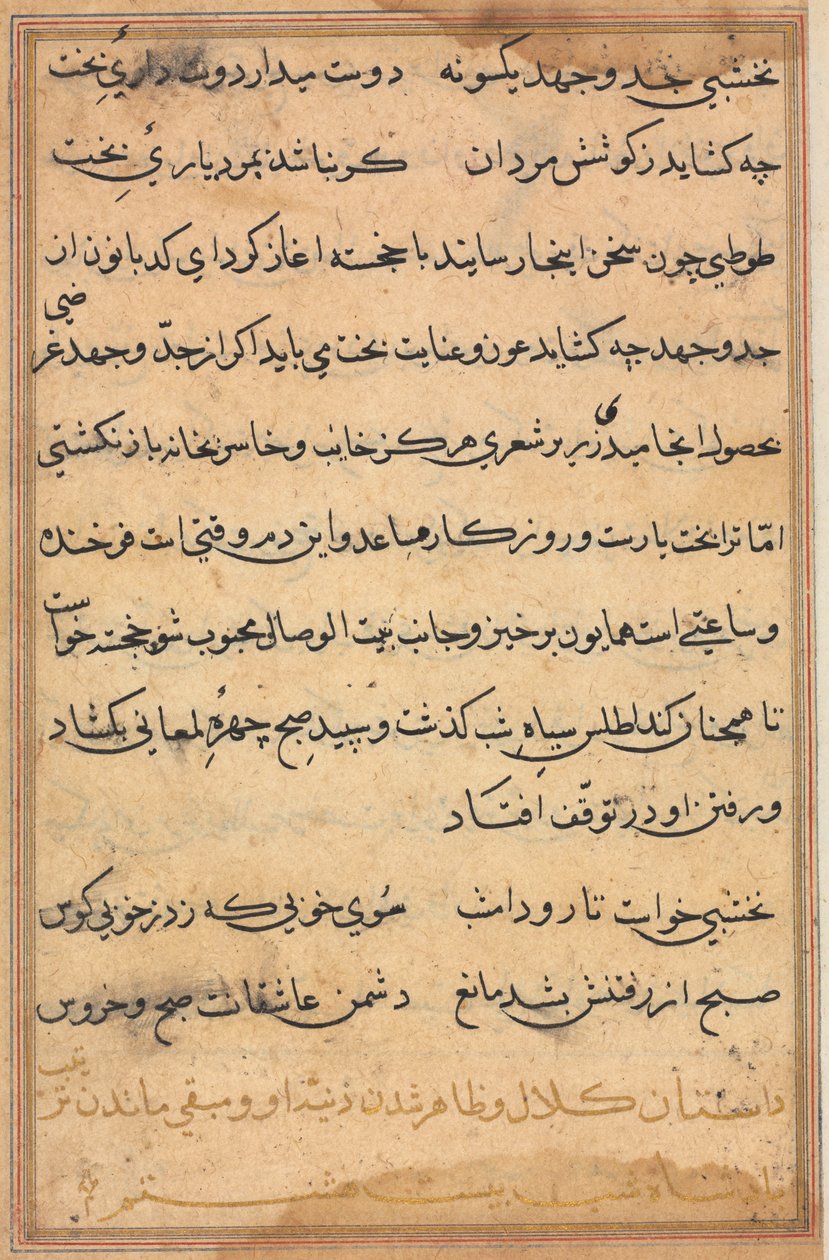 نخشبي جد و جهد یکسونه دوست میدار دوست داریِٔ بخت
چه کشاید ز کوشش مردان کر نباشد بمرد یاریِٔ بخت
طوطي چون سخن اینجا رسایند با خجسته اغاز کرد ای کدبانو ازن
جد و جهد چه کشاید عون و عنایت بخت مي باید اکر از جدّ و جهد غرضی
بحصول انجامیدی زیر بر شعري هرکز خایب و خاسر بخانه باز نکشتي
امّا ترا بخت یارست و روزکار مساعد و این دم وقتي است فرخنده
و ساعتي است همایون برخیز و جانب بیت الوصال محبوب شو خجسته خواست
تا همچنان کند اطلس سیاهِ شب کذشت و سپیدِ صبح چهرهٔ لمعاني بکشاد
و رفتن او در توقّف افتاد
نخشبي خواست تا رود امشب سُوي خوبي که زد ز خوبي کوس
صبح از رفتنش بشد مانع دشمن عاشقانت صبح و خروس
داستان کلال و ظاهر شدن او و مبقي ماندن ترتیب
بادشاه شب بیست هشتم